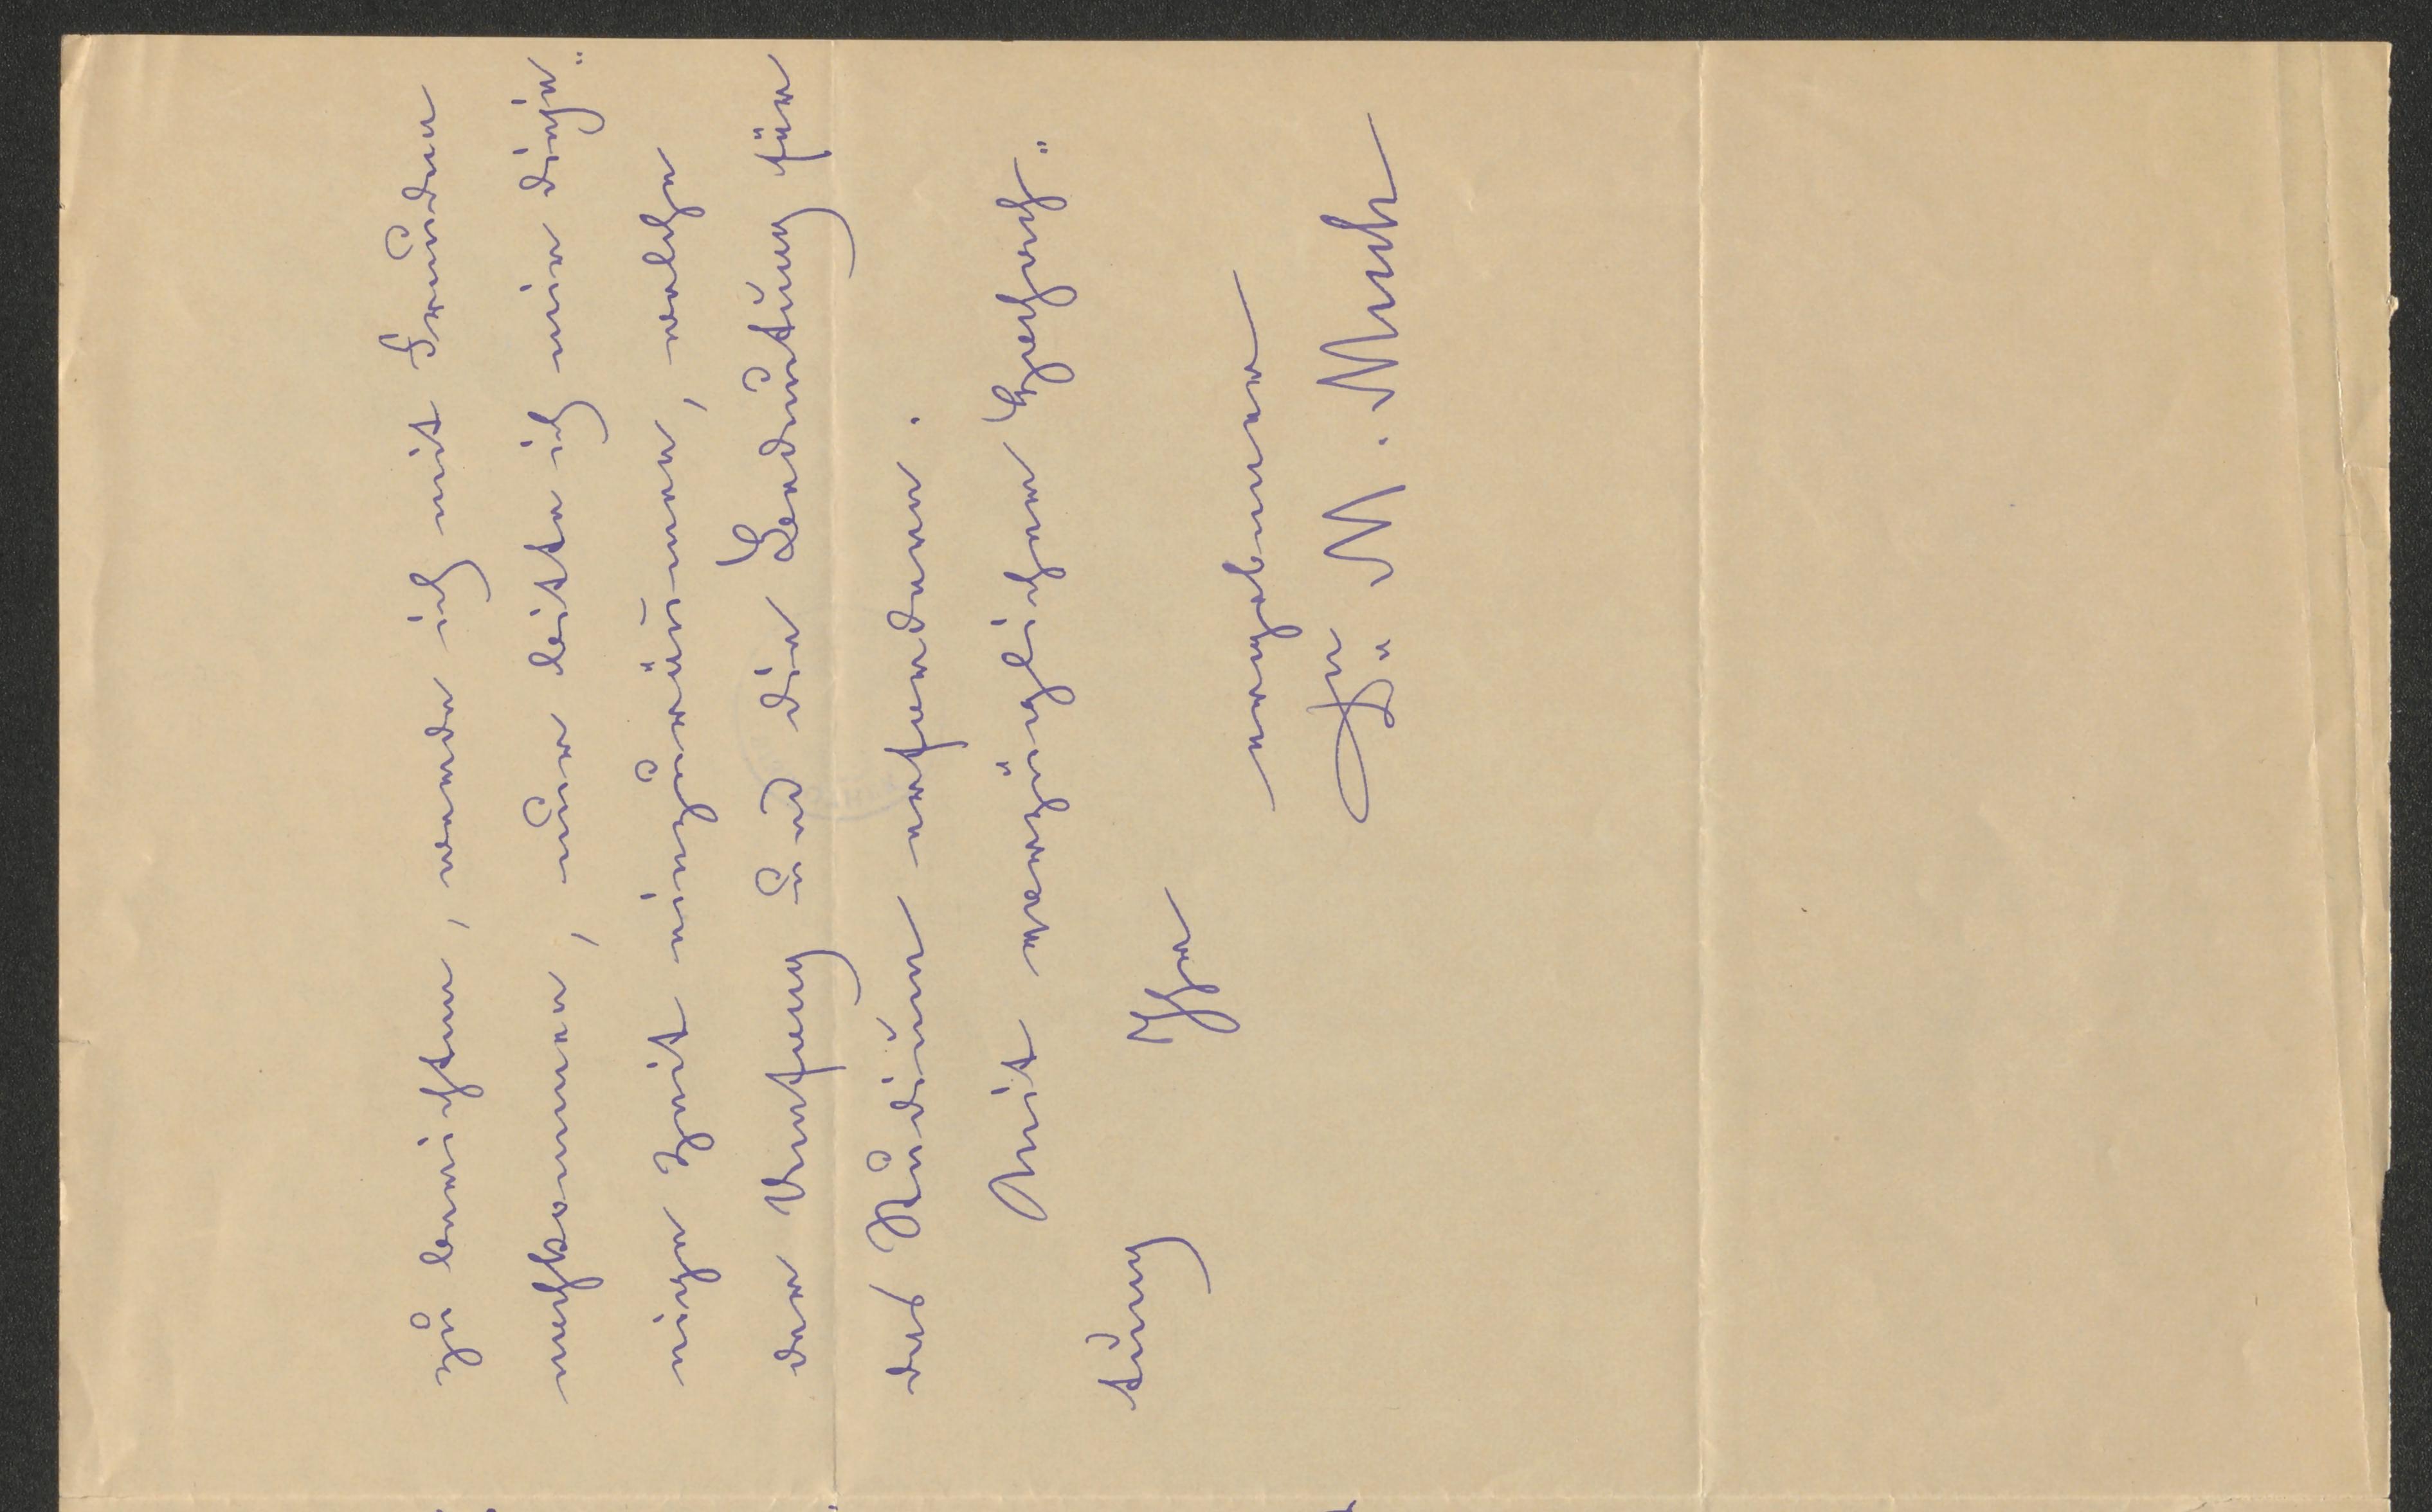 zu berichten, werde ich mit Freuden
nachkommen, nur bitte ich mir dieje-
nige Zeit einzuräumen, welche
der Umfang und die Bedeutung für
das Studium erfordern.
Mit vorzüglicher Hochach-
tung Ihr
ergebener
Dr. M. Much